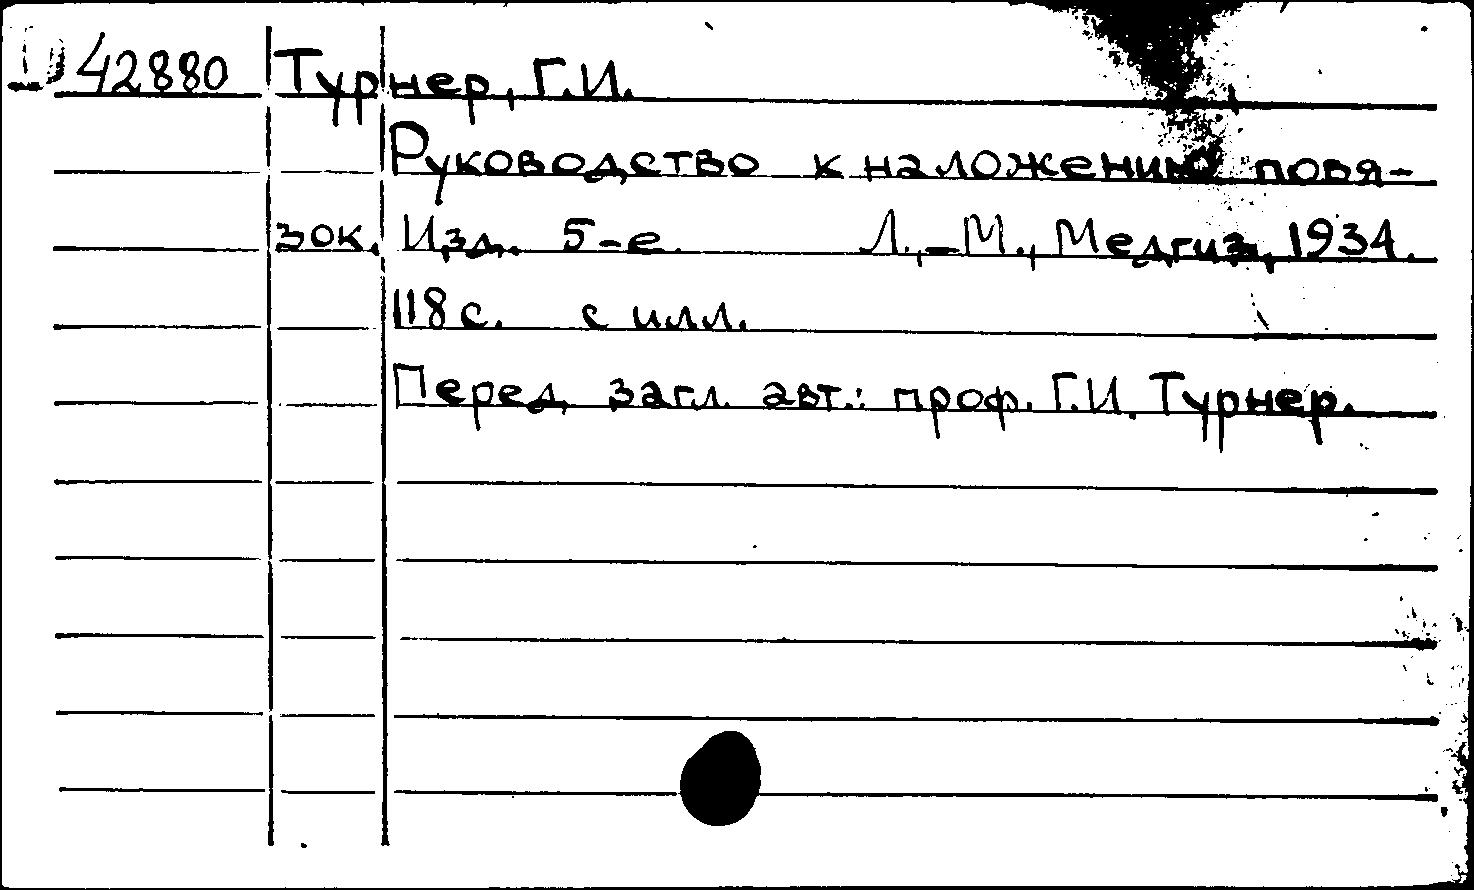 42880 Турнер, Г.И.
Руководство к наложению повя-
зок. Изд. 5-е. Л.,-М., Медгиз, 1934.
118 с. с илл.
Перед загл. авт.: проф. Г.И. Турнер.